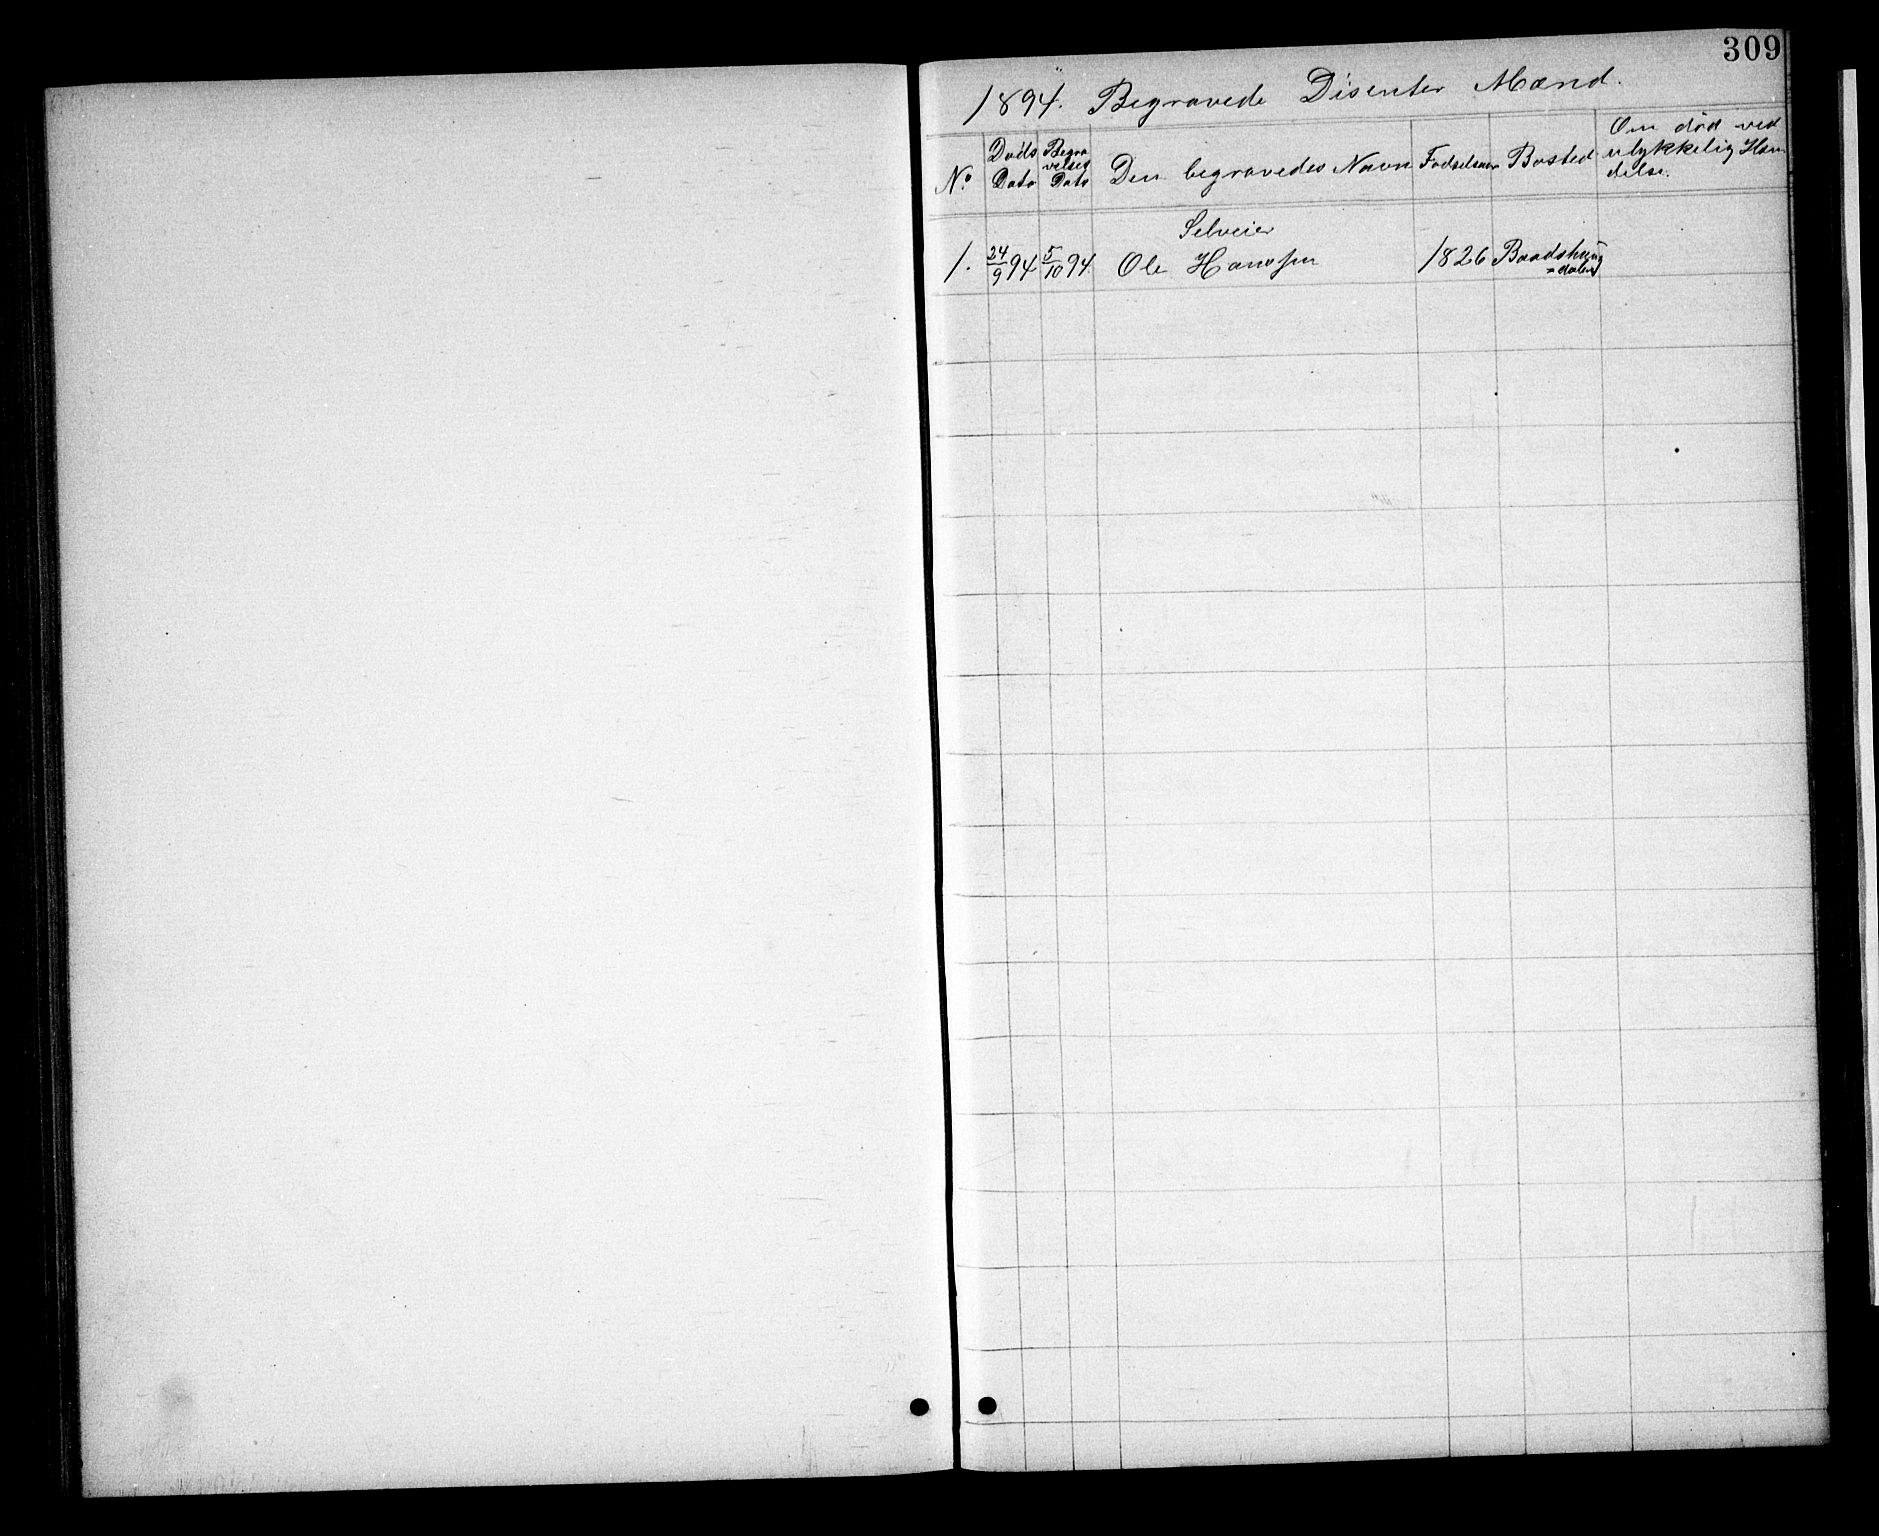 309
1894. Begravede Disenter Mænd.
No. Døds Dato Begravelses Dato Den begravedes Navn Fødselsaar Bosted Om død ved ulykkelig Hændelse.
Selveier
1. 24/9 94 5/10 94 Ole Hansen 1826 Baadshaug
=dalen